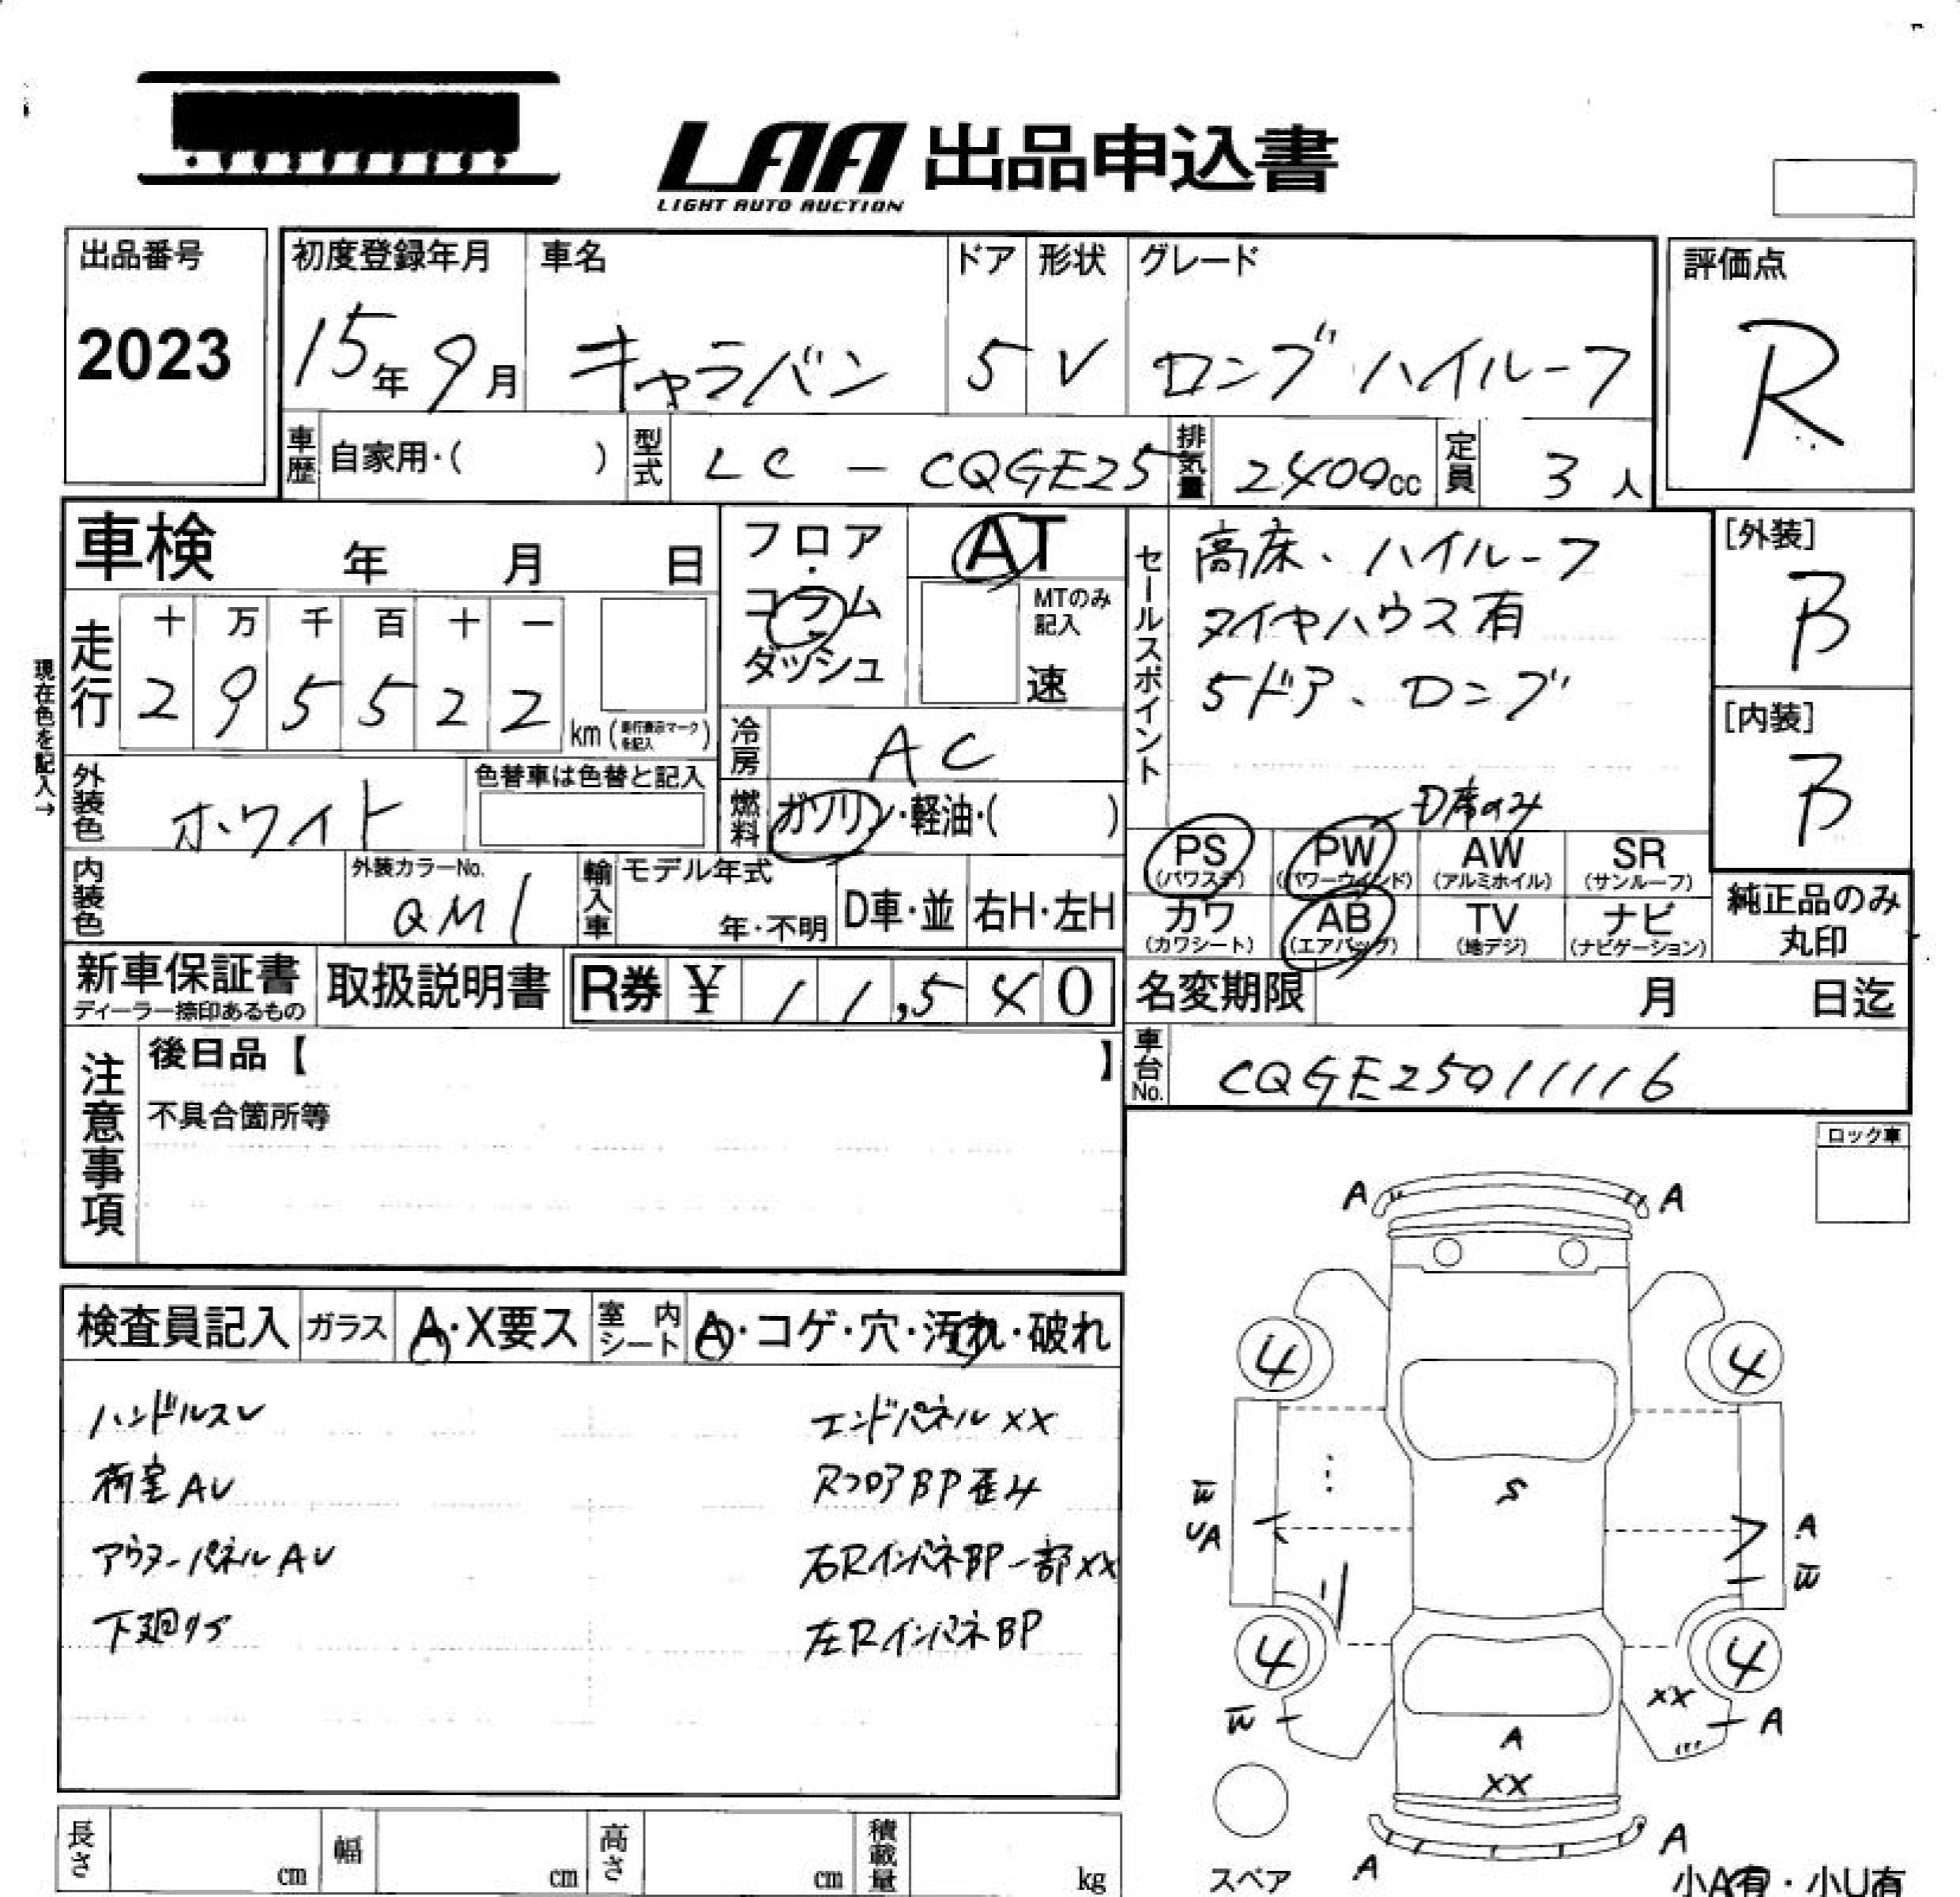 LAA 出品申込書
LIGHT AUTO AUCTION
出品番号
2023
初度登録年月 車名 ドア 形状 グレード
15年 9月 キャラバン 5 V ロング ハイルーフ
評価点
R
車歴 自家用・( ) 型式 LC - CQGE25 排気量 2400cc 定員 3人
車検 年 月 日
フロア・コラム ダッシュ
AT
MTのみ記入
速
セールスポイント
高床、ハイルーフ
タイヤハウス有
5ドア、ロング
D席のみ
[外装]
B
[内装]
B
現在色を記入→
走行 十 万 千 百 十 一
2 9 5 5 2 2
km (走行表示マークを記入)
冷房 AC
外装色 ホワイト
色替車は色替と記入
燃料 ガソリン・軽油・( )
PS (パワステ) PW (パワーウインド) AW (アルミホイル) SR (サンルーフ)
カワ (カワシート) AB (エアバッグ) TV (地デジ) ナビ (ナビゲーション)
純正品のみ
丸印
内装色 外装カラーNo. QM1
輸入車 モデル年式 年・不明 D車・並 右H・左H
新車保証書
ディーラー捺印あるもの
取扱説明書
R券 ¥ 11,540
名変期限 月 日迄
車台No. CQGE25011116
注意事項
後日品【 】
不具合箇所等
ロック車
検査員記入 ガラス A・X要ス 室内シート A・コゲ・穴・汚れ・破れ
ハンドルスレ エンドパネルXX
荷室AU RフロアBP歪み
アウターパネルAU 右RインパネBP一部XX
下廻りサ 左RインパネBP
A A
4 4
S
W
UA
A
W
4 4
XX
W A
A
XX
A
A
スペア
小A有・小U有
長さ cm 幅 cm 高さ cm 積載量 kg